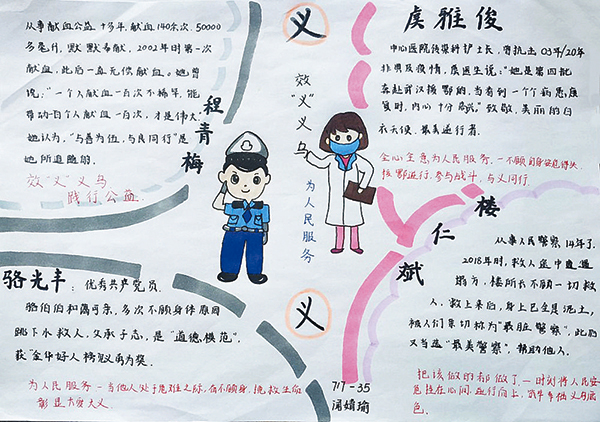 从事献血公益十多年,献血140余次,50000
多毫升,默默奉献,2002年时第一次
献血,此后一直无偿献血。她曾
说:"一个人献血一百次不稀罕,能
带动一百个人献血一次,才是伟大"
她认为,"与善为伍,与良同行"是
她所追随的。
程青梅
效"义"义乌
践行公益
义
效"义"义乌
为人民服务
义
虞雅俊
中心医院传染科护士长,曾抗击03年/20年
非典及疫情,虞医生说:"她是第四批
奔赴武汉援鄂的,当看到一个个病患康
复时,内心十分感动。"致敬,美丽的白
衣天使,最美逆行者。
全心全意为人民服务,一不顾自身安危得失
援鄂逆行,参与战斗,与义同行。
楼仁斌
从事人民警察,14年了。
2018年时,救人途中遭遇
塌方,楼所长不顾一切救
人,救上来后,身上已全是泥土,
被人们亲切称为"最脏警察",此后
又当选"最美警察",帮助他人。
把该做的都做了,一时刻将人民安
危挂在心间,逆行向上,
色。
骆光丰:优秀共产党员
骆伯伯和蔼可亲,多次不顾身体原因
跳下水救人,父承子志,是"道德模范",
获"金华好人榜见义勇为奖。
为人民服务-当他人处于危难之际,奋不顾身,挽救生命
彰显大爱大义
717-35
周婧瑜